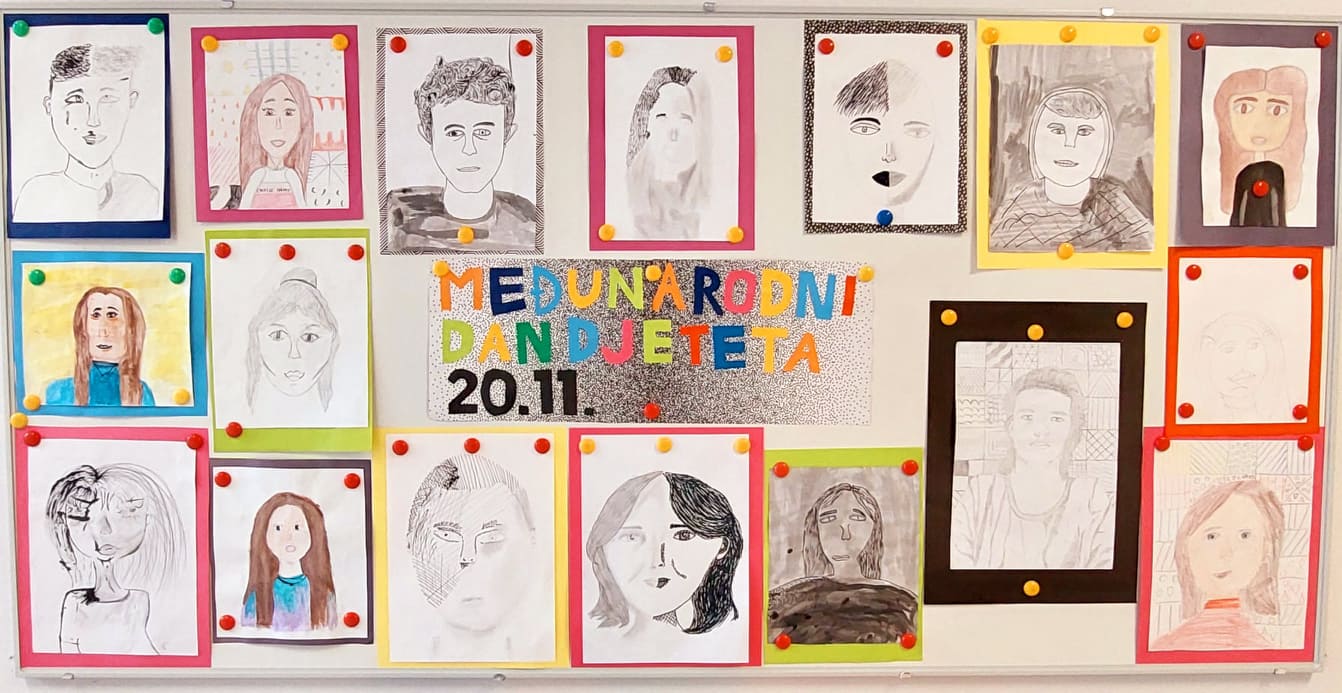 MEĐUNARODNI
DAN DJETETA
20.11.